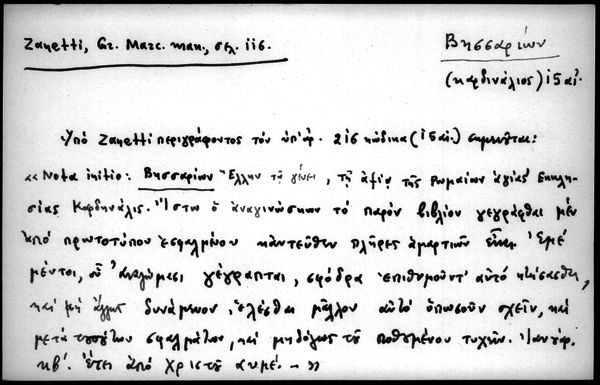 Zanetti, Gr. Marc. man., σελ. 116.
Βησσαρίων
(καρδινάλιος) 15 αἰ.
Ὑπὸ Zanetti περιγράφοντος τὸν ὑπ' ἀρ. 216 κώδικα (15 αἰ.) σημειοῦται:
«Nota initio: Βησσαρίων Ἕλλην τῷ γένει, τῇ ἀξίᾳ τῆς Ρωμαίων ἁγίας Ἐκκλη-
σίας Καρδηνάλις. Ἴστω ὁ ἀναγινώσκων τὸ παρὸν βιβλίον γεγράφθαι μὲν
ἀπὸ πρωτοτύπου ἐσφαλμένου κἀντεῦθεν πλῆρες ἁμαρτιῶν εἶναι. Ἐμὲ
μέντοι, οὗ ἀναλώμασι γέγραπται, σφόδρα ἐπιθυμοῦντ' αὐτὸ κτήσασθαι,
καὶ μὴ ἄλλως δυνάμενον, ἑλέσθαι μᾶλλον αὐτὸ ὁπωσοῦν σχεῖν, καὶ
μετὰ τοσούτων σφαλμάτων, καὶ μηδόλως τοῦ ποθουμένου τυχεῖν. Ἰανουαρ.
κβ΄. ἔτει ἀπὸ Χριστοῦ αυμέ. — »